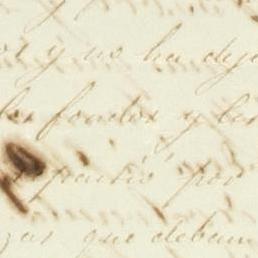 y no ha dej
los fondos y las
partió por
zas que debian